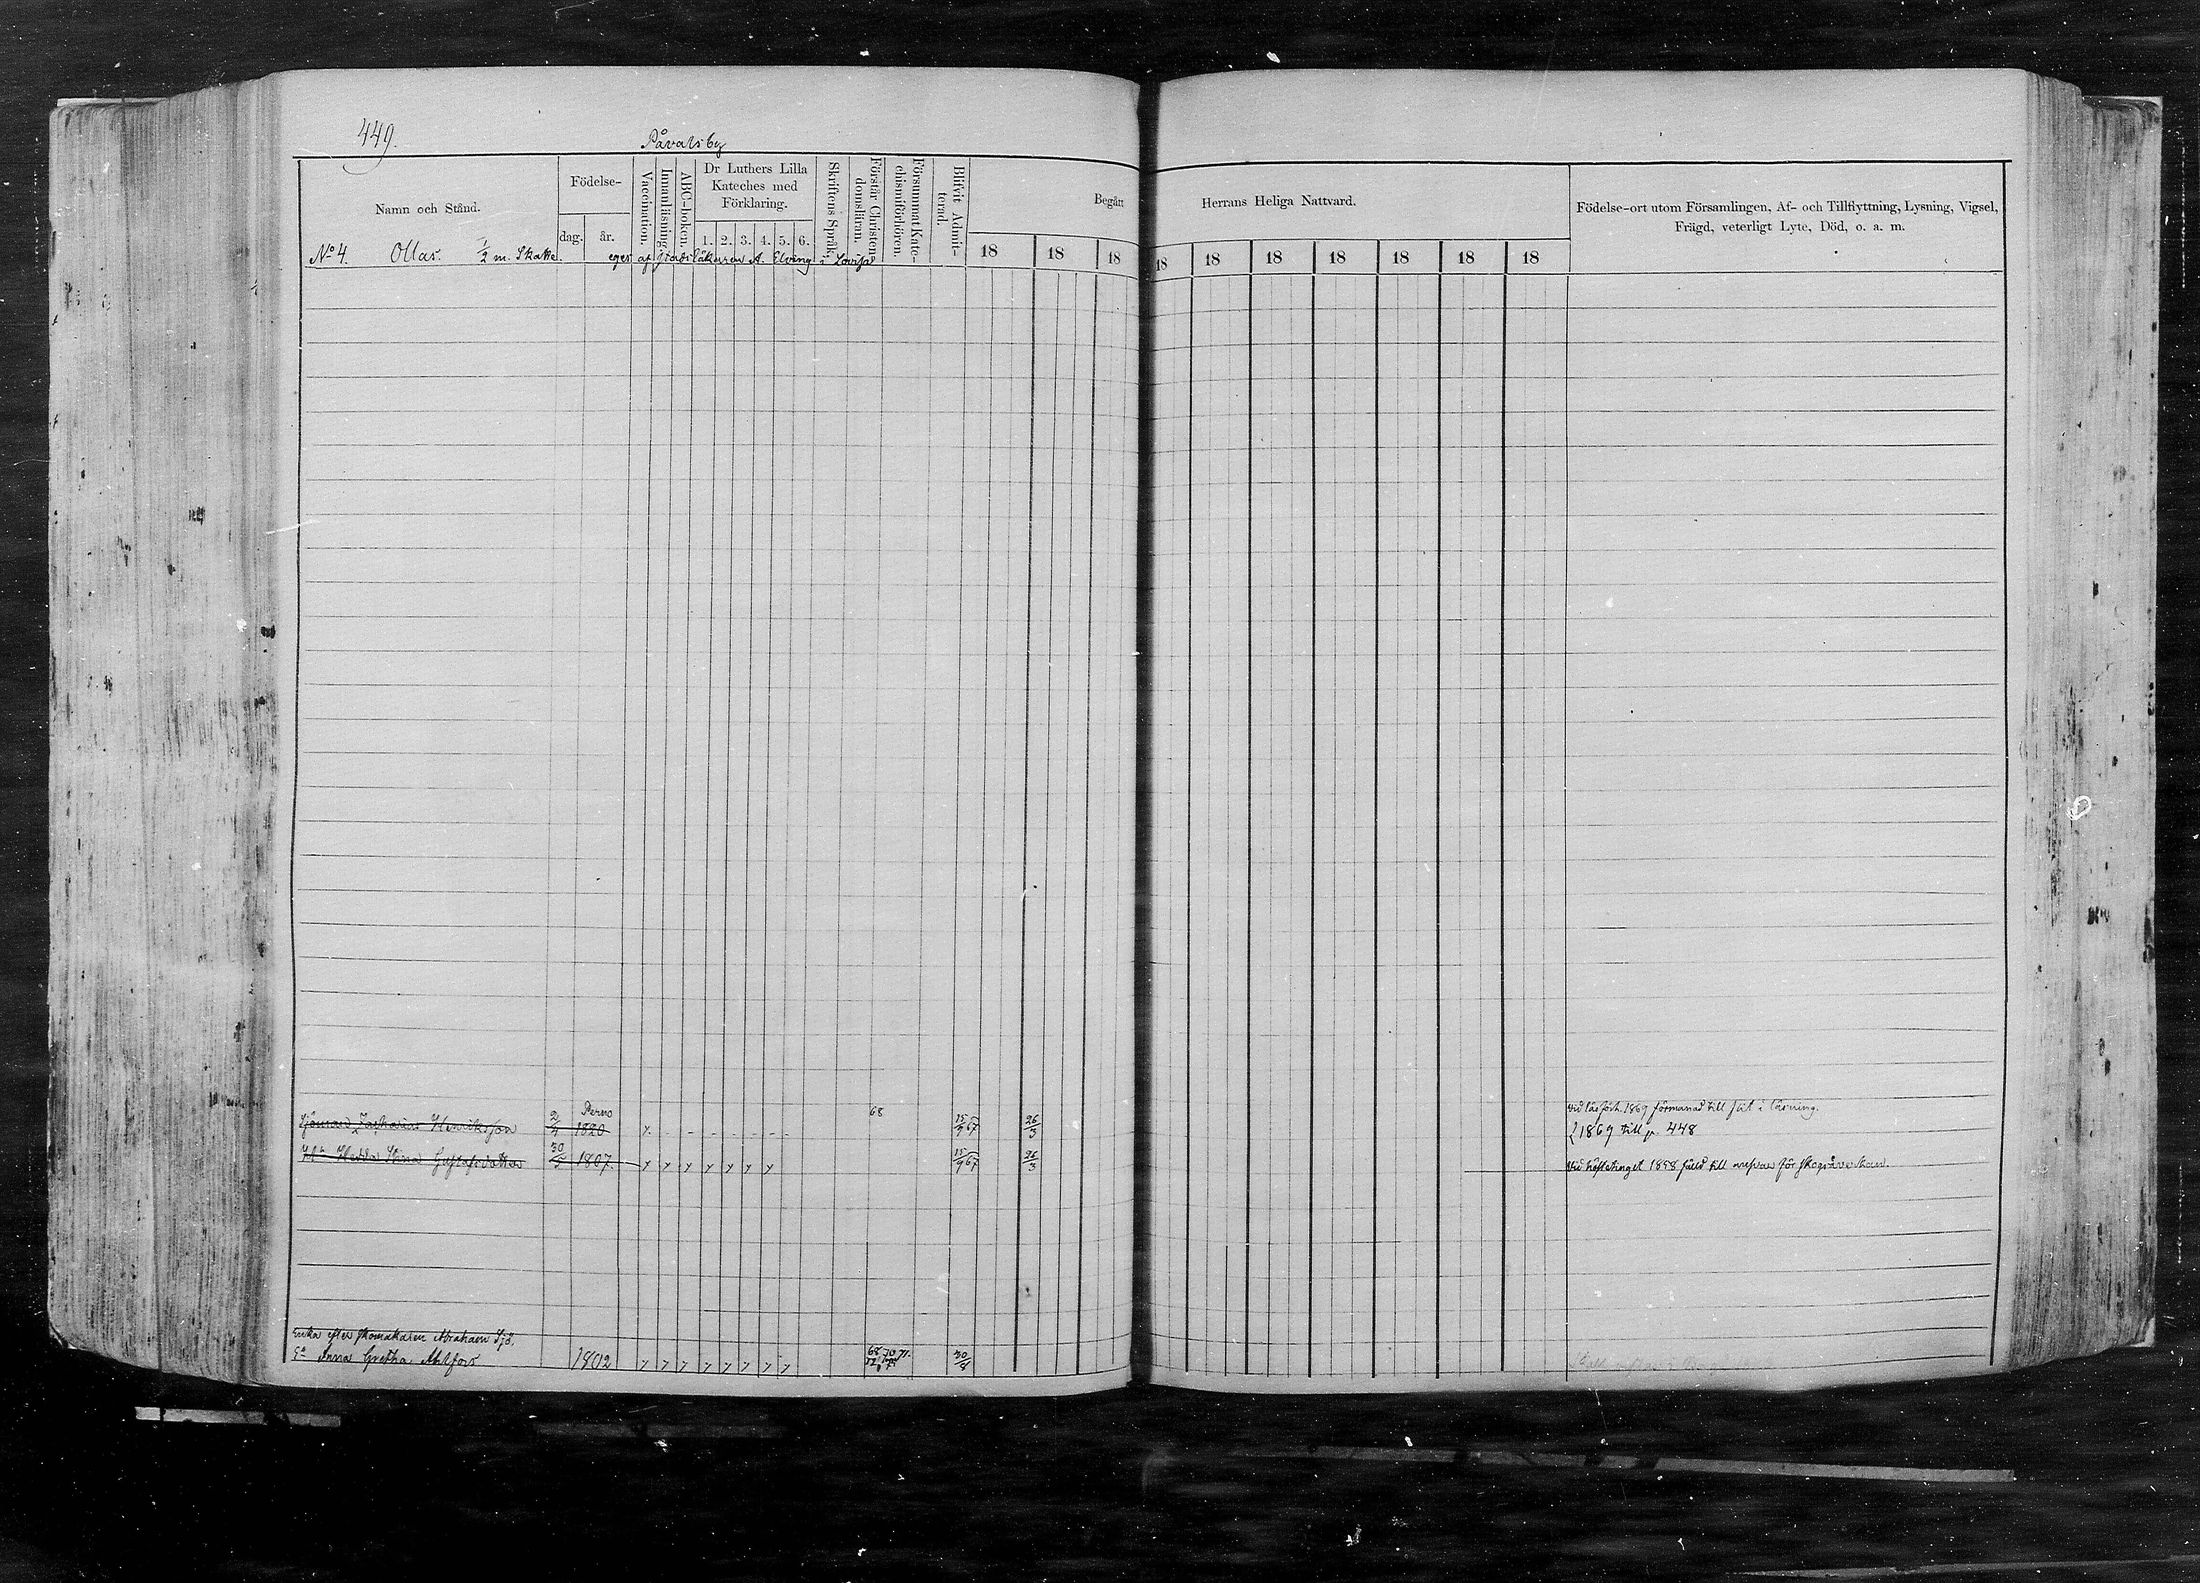 449.
Påvalsby
Namn och Stånd.
Födelse-
dag. år.
Vaccination.
Innanläsning.
ABC-boken.
Dr Luthers Lilla Kateches med Förklaring.
1. 2. 3. 4. 5. 6.
Skriftens Språk.
Förstår Christendomsläran.
Försummat Katechismiförhören.
Blifvit Admitterad.
Begått Herrans Heliga Nattvard.
18 18 18 18 18 18 18 18 18 18
Födelse-ort utom Församlingen, Af- och Tillflyttning, Lysning, Vigsel,
Frägd, veterligt Lyte, Död, o. a. m.
No 4. Ollas. 1/2 m. Skatte. eges af Stadsläkaren A. Elving i Lovisa
Perno 68 vid läsförh. 1869 förmanad till flit i läsning.
Sjöman Zacharias Henriksson 2/4 1820 15/9 67 26/3 1869 till p. 448
Hedda Stina Gustafsdotter 30/5 1807. 15/9 67 26/3 vid hösttinget 1858 fälld till ansvar för skogsåverkan.
Enka efter skomakaren Abraham Sjö,
Anna Gretha Ahlfors 1802 68 70 71. 30/8